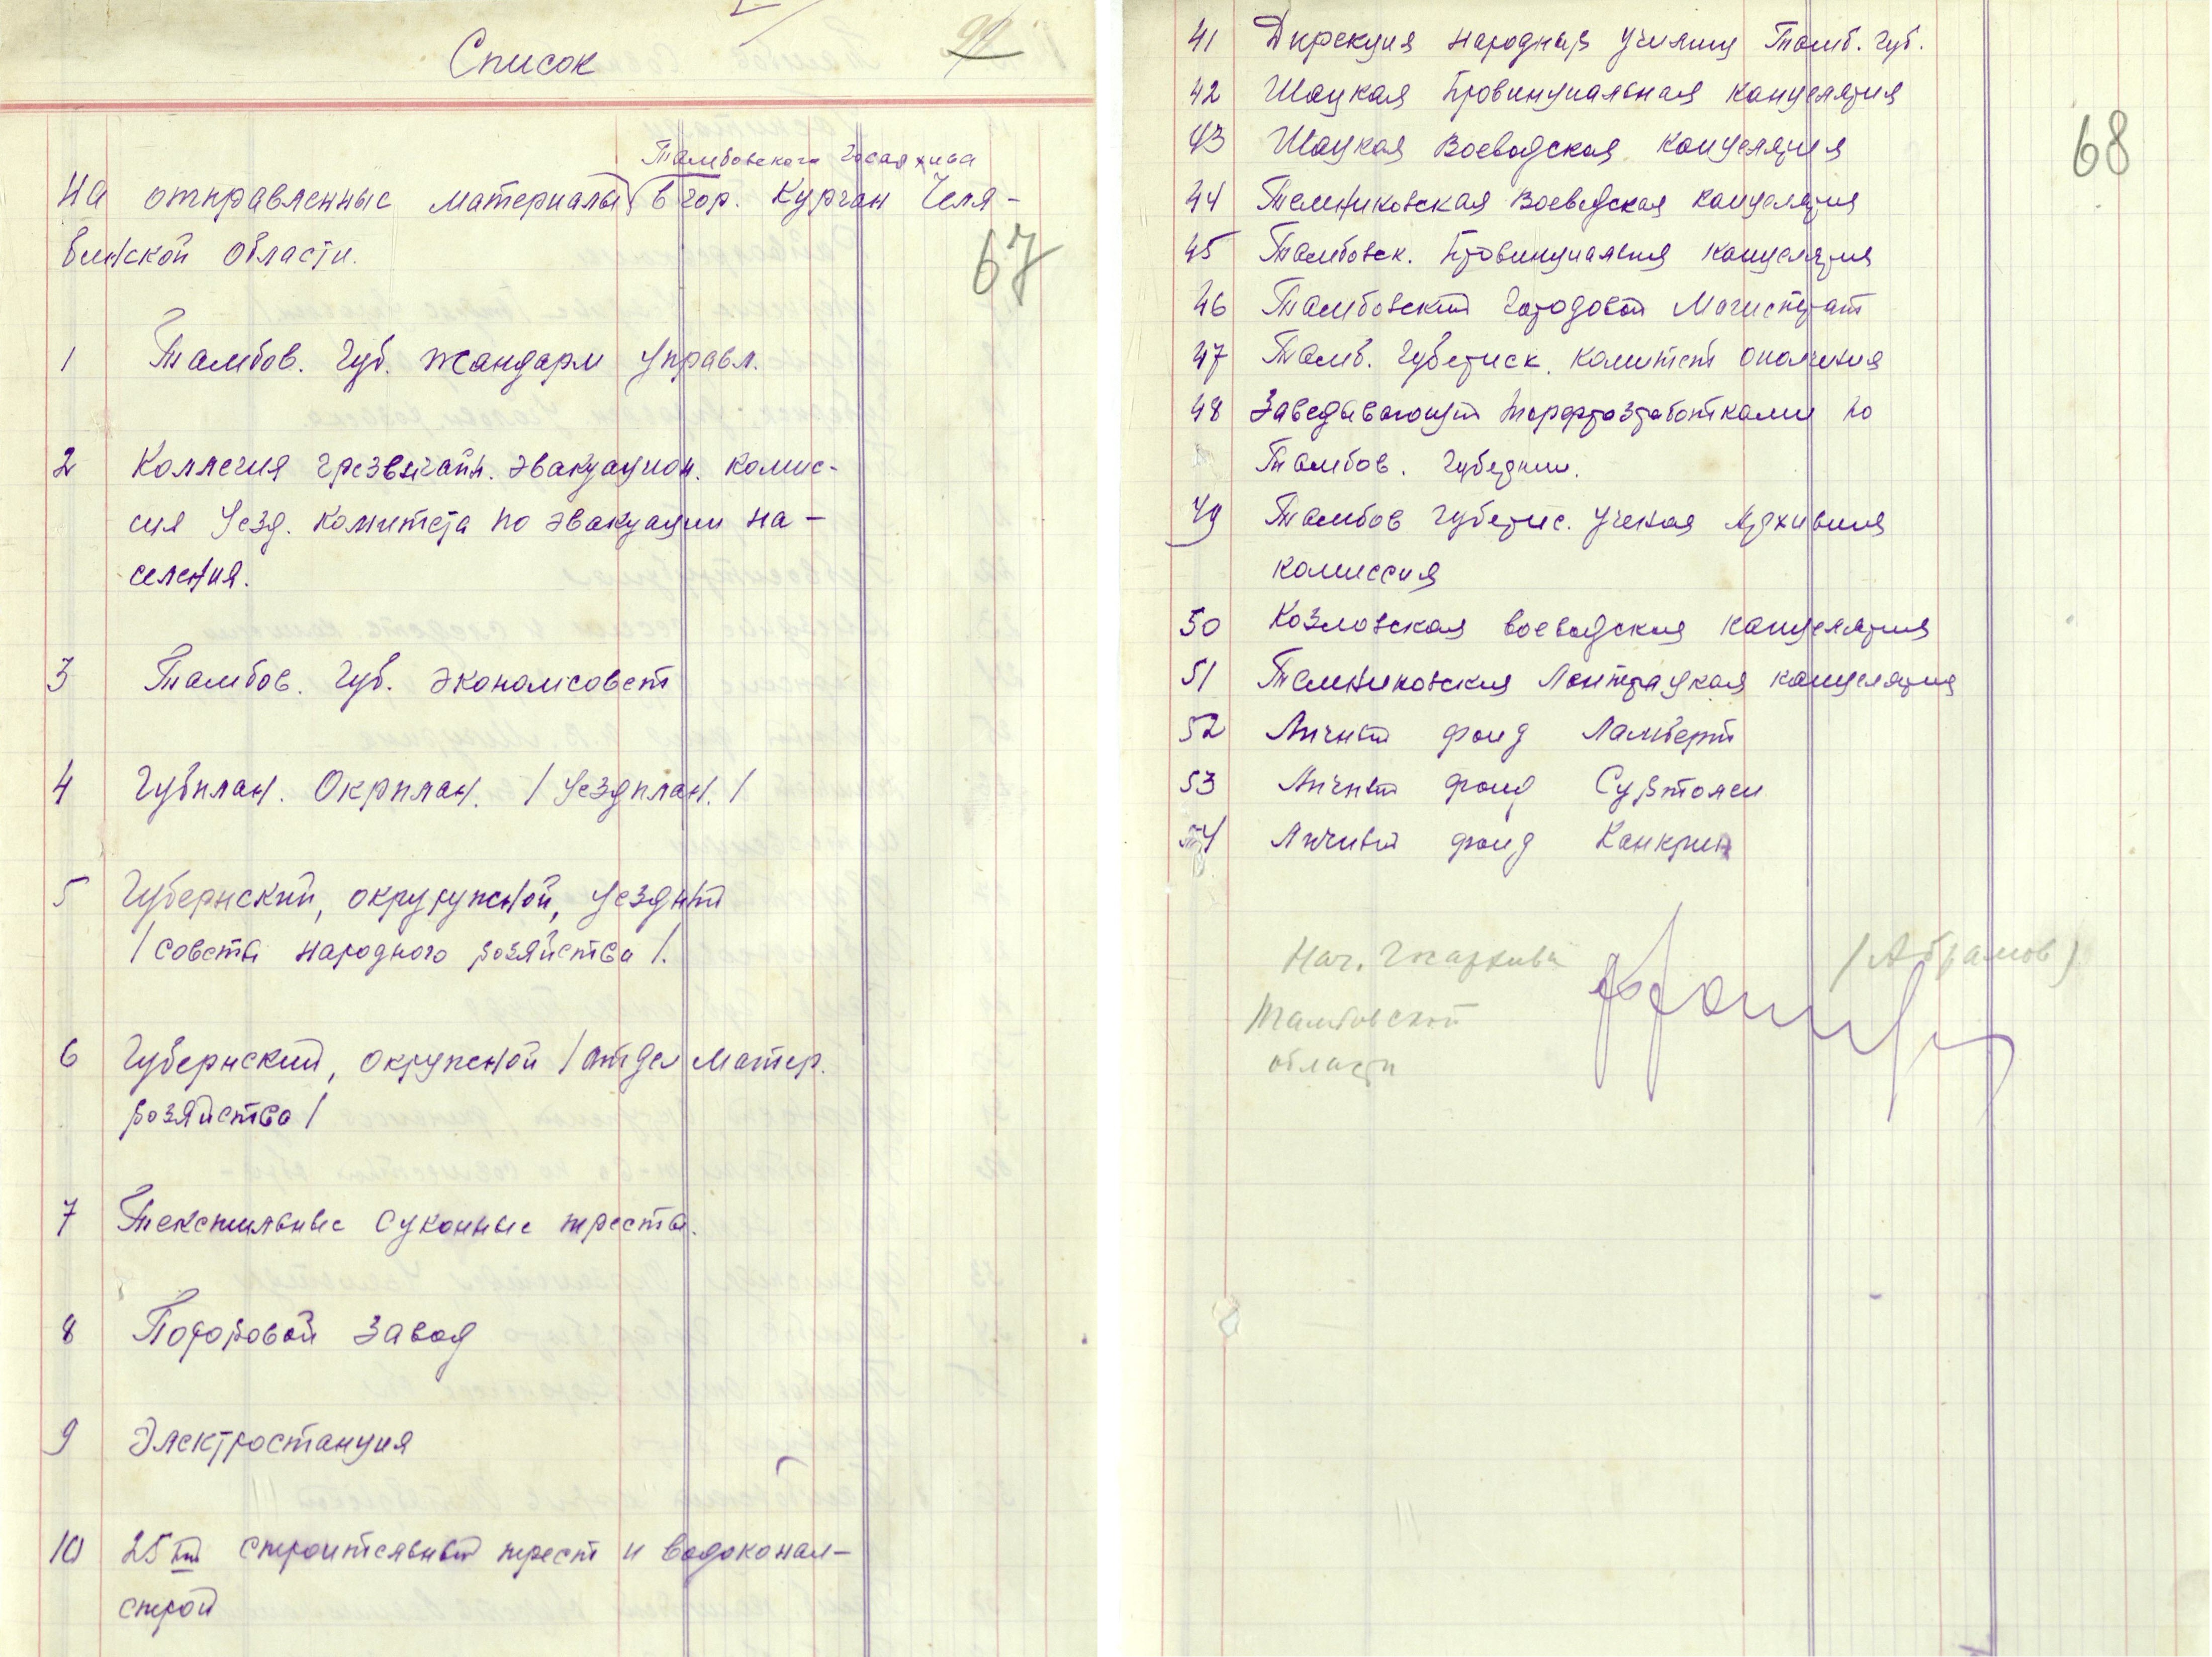 Список
Тамбовского Госархива
На отправленные материалы в гор. Курган Челя-
бинской области.
67
1 Тамбов. Губ. Жандарм Управл.
2 Коллегия чрезвычайн. эвакуацион. комис-
сия Уезд. комитета по эвакуации на-
селения.
3 Тамбов. Губ. экономсовет
4 Губплан. Окрплан. /Уездплан./
5 Губернский, окружной, Уездный
/советы народного хозяйства/.
6 Губернский, окружной /отдел матер.
хозяйства/
7 Текстильные суконные тресты.
8 Пороховой завод
9 Электростанция
10 25ый строительный трест и водоканал-
строй
41 Дирекция народных училищ Тамб. губ.
68
42 Шацкая Провинциальная канцелярия
43 Шацкая Воеводская канцелярия
44 Темниковская Воеводская канцелярия
45 Тамбовск. Провинциальная канцелярия
46 Тамбовский Городовой Магистрат
47 Тамб. Губернск. комитет ополчения
48 Заведывающий торфразработками по
Тамбов. губернии.
49 Тамбов губернс. ученая Архивная
комиссия
50 Козловская воеводская канцелярия
51 Темниковская Лантрацкая канцелярия
52 Личный фонд Ламберт
53 Личный фонд Сухтолен
54 Личный фонд Канкрин
Нач. Госархива (Абрамов)
Тамбовской
области